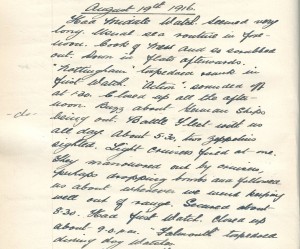 August 19th 1916.
Had Middle Watch. Seemed very
long. Usual sea routine in fore-
noon. Cook of Mess and so scrubbed
out. Down in flats afterwards.
"Nottingham" torpedoed sunk in
First Watch. "Action" sounded off
at 1.30. Closed up all the after-
noon. Buzz about German Ships
-do-
being out. Battle Fleet with us
all day. About 5.30, two zeppelins
sighted. Light cruisers fired at one.
They manoeuvred out by cruisers,
perhaps dropping bombs and followed
us about wherever we went keeping
well out of range. Secured about
8.30. Had First Watch. Closed up
about 9.0 p.m. "Falmouth" torpedoed
during day Watches